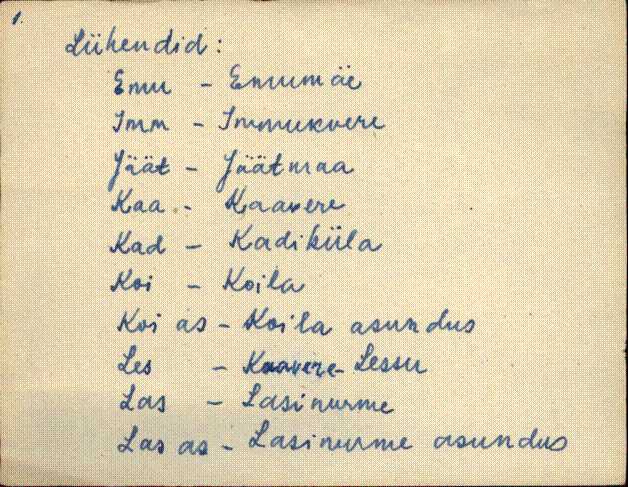 1.
Lühendid:
Emu - Emumäe
Imm - Immukvere
Jäät - Jäätmaa
Kaa - Kaavere
Kad - Kadiküla
Koi - Koila
Koi as - Koila asundus
Les - Kaavere-Lessu
Las - Lasinurme
Las as - Lasinurme asundus